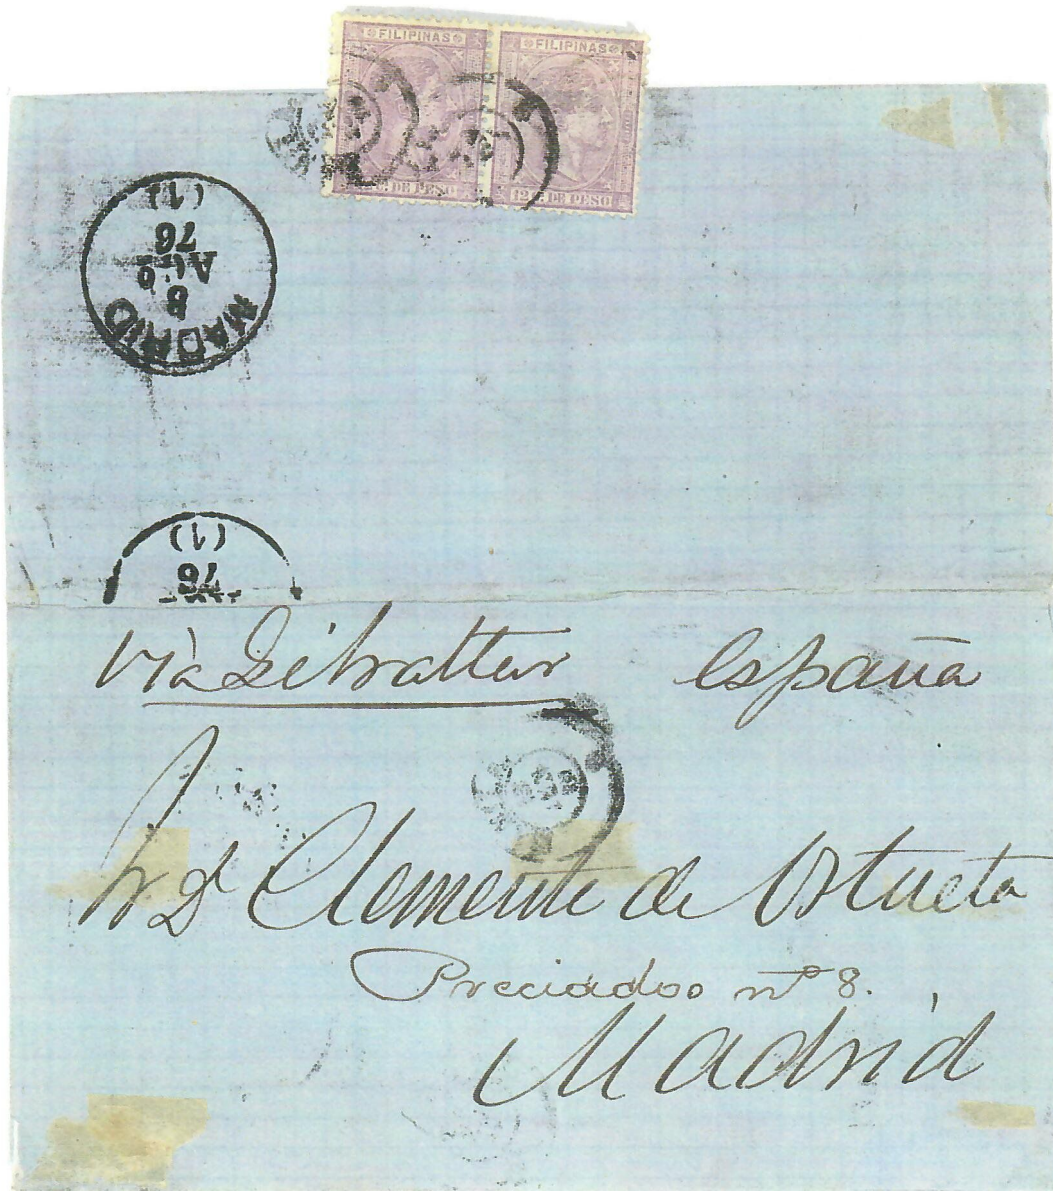 FILIPINAS FILIPINAS
DE PESO 12 Cs DE PESO
(1)
76
AGO
8
MADRID
(1)
76
Via Gibraltar España
Sr Dn Clemente de Ostueta
Preciados nº 8.
Madrid